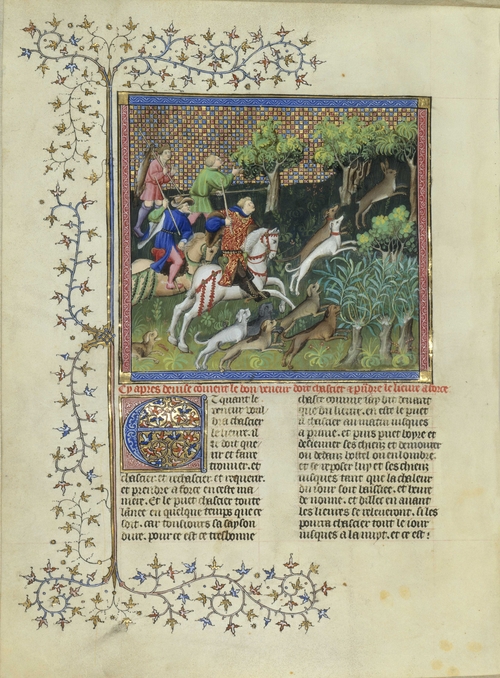 Cy apres devise coment le bon veneur doit chassier et prendre le lievre a force
Et quant le
veneur voul
dra chassier
le lievre. il
le doit que
rir et faire
trouver. et
chassier et rechassier et requerir.
et prendre a force en ceste ma
niere. Et le puet chassier toute
lanee en quelque temps que ce
soit. car tousiours sa sayson
dure. pour ce est ce tresbonne
chasse comme iay dit devant
que du lievre. en este le puet
il chassier au matin iusques
a prime. et puis puet boyre et
desieuner ses chiens et demourer
en ombre.
et se reposer luy et ses chiens
iusques tant que la chaleur
du iour soit baissiee. et leure
de nonne. et dillec en avant
les lievres se releveront. si les
pourra chassier tout le iour
iusques a la nuyt. et ce est